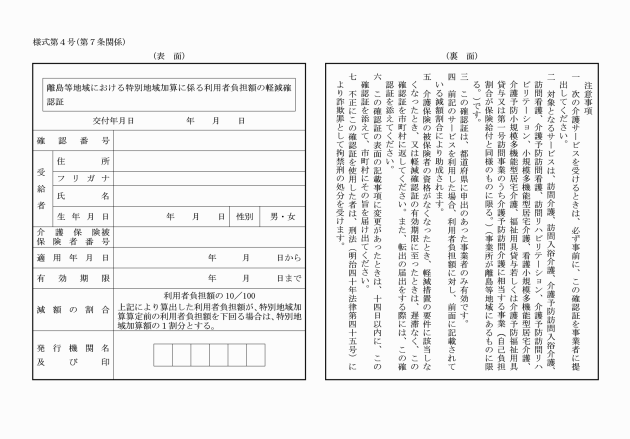 様式第４号（第７条関係）
（表　面）
離島等地域における特別地域加算に係る利用者負担額の軽減確
認証
交付年月日　年　月　日
確認番号
受給者
住所
フリガナ
氏名
生年月日　年　月　日　性別　男・女
介護保険被
保険者番号
適用年月日　年　月　日から
有効期限　年　月　日まで
減額の割合
利用者負担額の10／100
上記により算出した利用者負担額が、特別地域加
算算定前の利用者負担額を下回る場合は、特別地
域加算額の１割分とする。
発行機関名
及び印
（裏　面）
注意事項
一　次の介護サービスを受けるときは、必ず事前に、この確認証を事業者に提
出してください。
二　対象となるサービスは、訪問介護、訪問入浴介護、介護予防訪問入浴介護、
訪問看護、介護予防訪問看護、訪問リハビリテーション、介護予防訪問リハ
ビリテーション、小規模多機能型居宅介護、看護小規模多機能型居宅介護、
介護予防小規模多機能型居宅介護、福祉用具貸与若しくは介護予防福祉用具
貸与又は第一号訪問事業のうち介護予防訪問介護に相当する事業（自己負担
割合が保険給付と同様のものに限る。）（事業所が離島等地域にあるものに限
る。）です。
三　この確認証は、都道府県に申出のあった事業者のみ有効です。
四　前記のサービスを利用した場合、利用者負担額に対し、前面に記載されて
いる減額割合により助成されます。
五　介護保険の被保険者の資格がなくなったとき、軽減措置の要件に該当しな
くなったとき、又は軽減確認証の有効期限に至ったときは、遅滞なく、この
確認証を市町村に返してください。また、転出の届出をする際には、この確
認証を添えてください。
六　この確認証の表面の記載事項に変更があったときは、十四日以内に、この
確認証を添えて、市町村にその旨を届け出てください。
七　不正にこの確認証を使用した者は、刑法（明治四十年法律第四十五号）に
より詐欺罪として拘禁刑の処分を受けます。